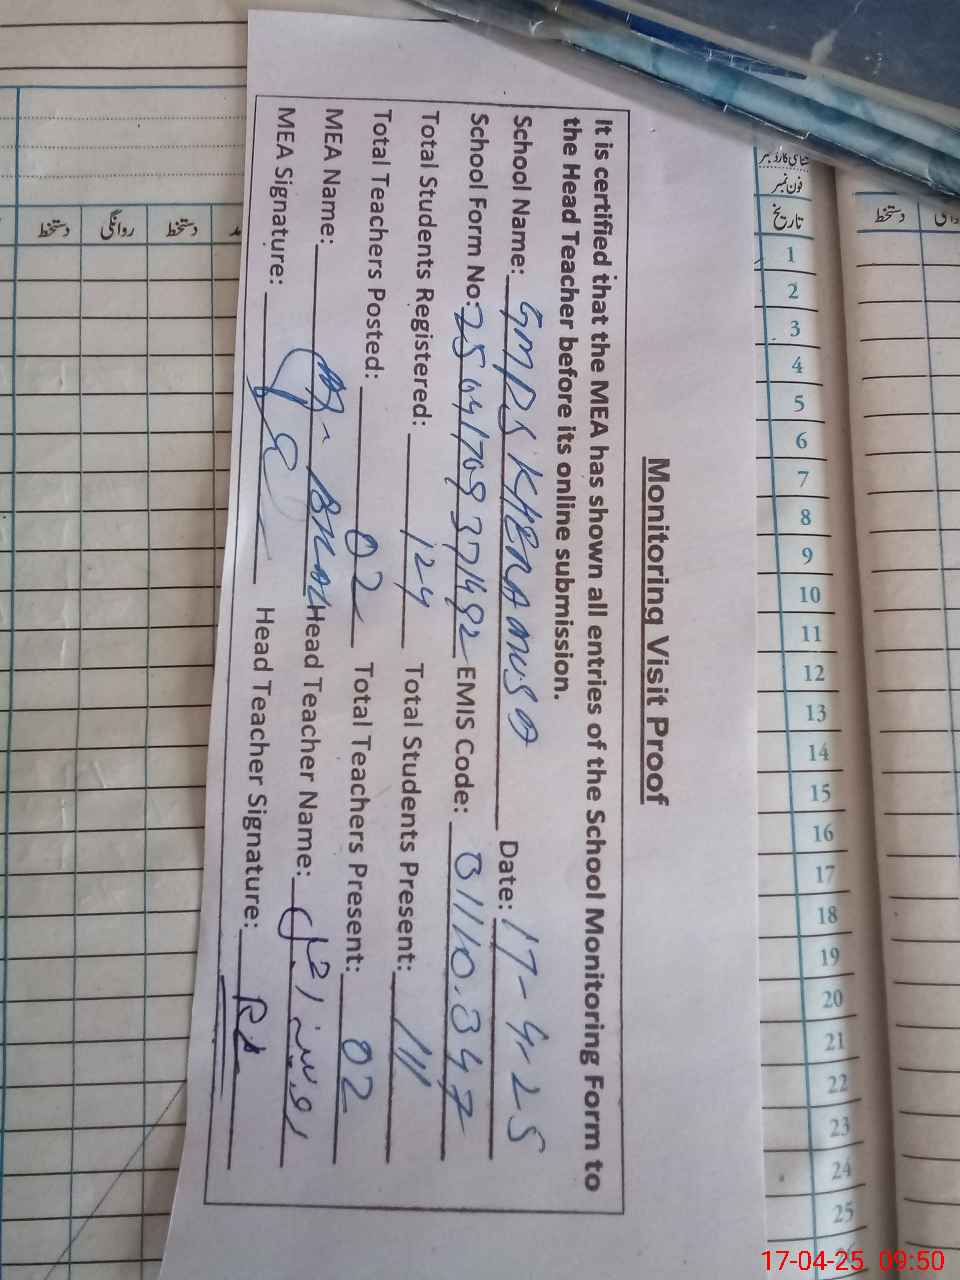 Monitoring Visit Proof
It is certified that the MEA has shown all entries of the School Monitoring Form to
the Head Teacher before its online submission.
School Name: GMPS KHERA MUSA Date: 17-4-25
School Form No: 2504170937492 EMIS Code: 31110347
Total Students Registered: 124 Total Students Present: 111
Total Teachers Posted: 02 Total Teachers Present: 02
MEA Name: Head Teacher Name:
MEA Signature: Head Teacher Signature:
فون نمبر
تاریخ
1
2
3
4
5
6
7
8
9
10
11
12
13
14
15
16
17
18
19
20
21
22
23
24
25
26
دستخط
دستخط
روانگی
دستخط
17-04-25 09:50